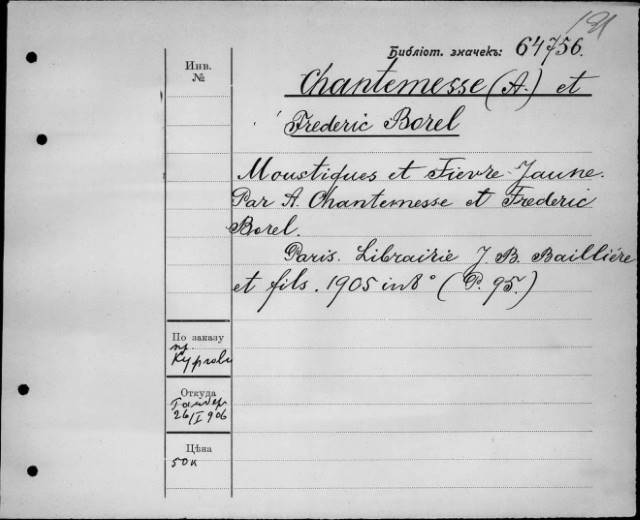 Библіот. значекъ: 64756.
Инв.
№
Chantemesse (A.) et
Frederic Borel
Moustiques et Fievre Jaune.
Par A. Chantemesse et Frederic
Borel.
Paris. Librairie J. B. Bailliére
et fils. 1905 in 8° (P. 95.)
По заказу
пр.
Откуда
26/I 906
Цѣна
50к